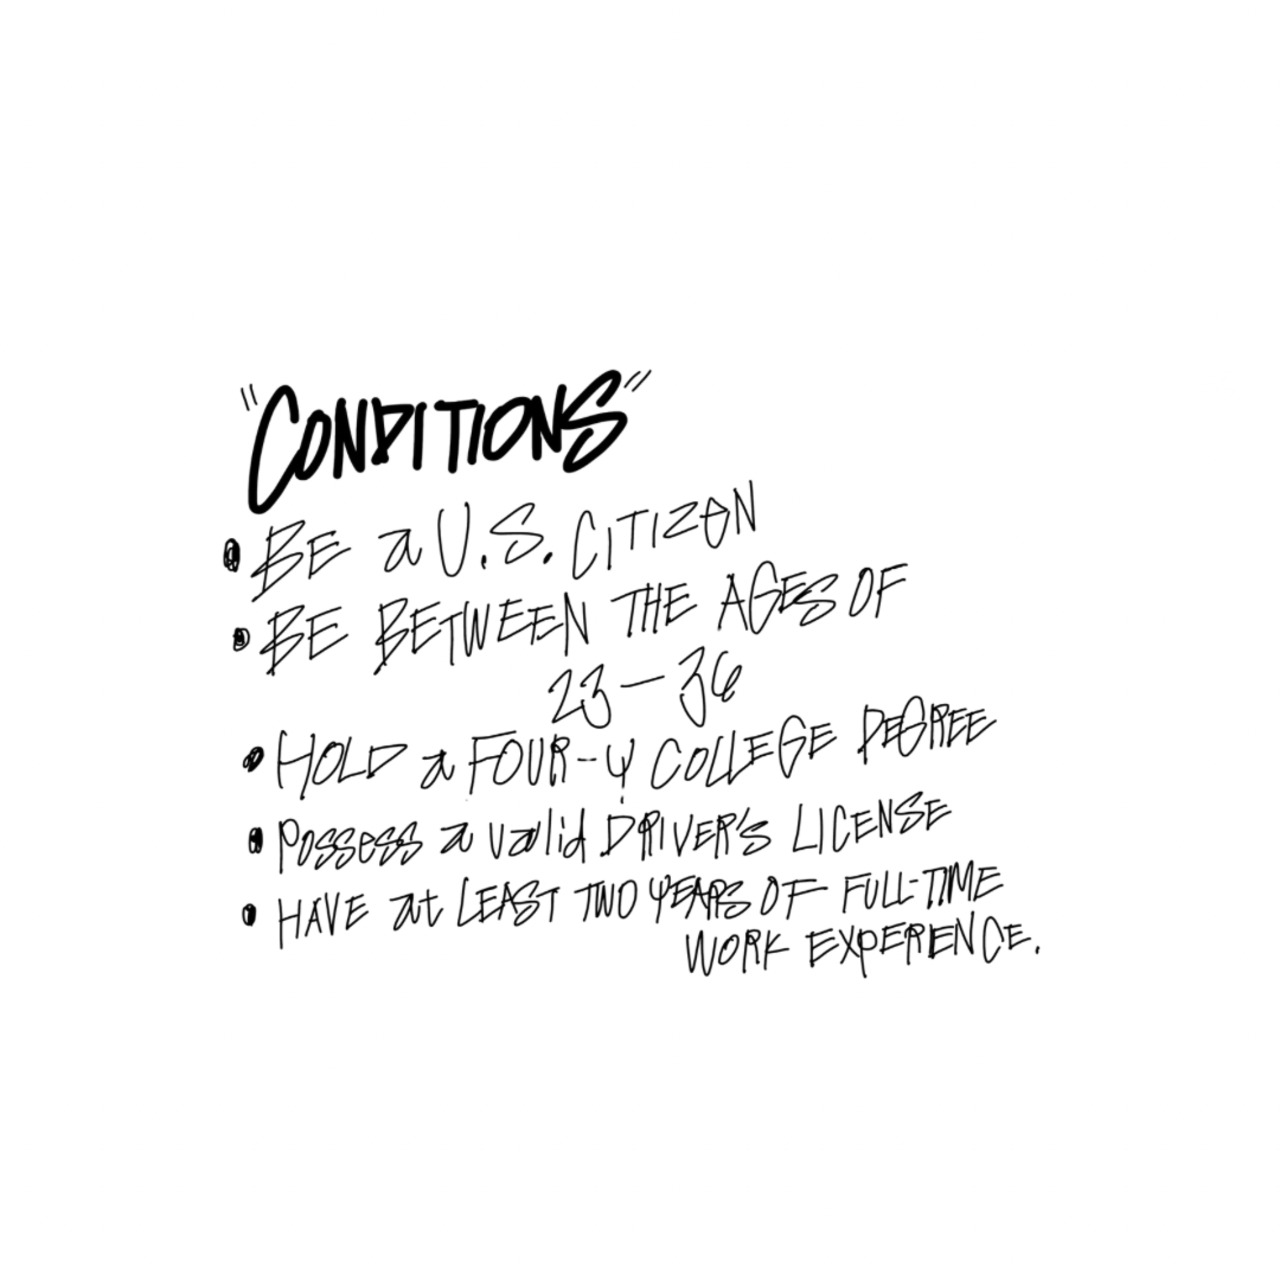 "CONDITIONS"
• BE a U.S. CITIZEN
• BE BETWEEN THE AGES OF
23-36
• HOLD a FOUR-Y COLLEGE DEGREE
• Possess a valid DRIVER'S LICENSE
• HAVE at LEAST TWO YEARS OF FULL-TIME
WORK EXPERIENCE.